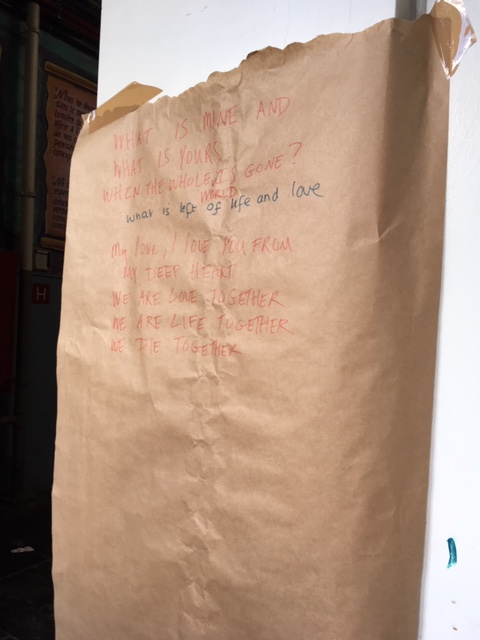 WHAT IS MINE AND
WHAT IS YOURS
WHEN THE WHOLE IS GONE?
WORLD
what is left of life and love
My love, I LOVE YOU FROM
MY DEEP HEART
WE ARE LOVE TOGETHER
WE ARE LIFE TOGETHER
WE DIE TOGETHER
H